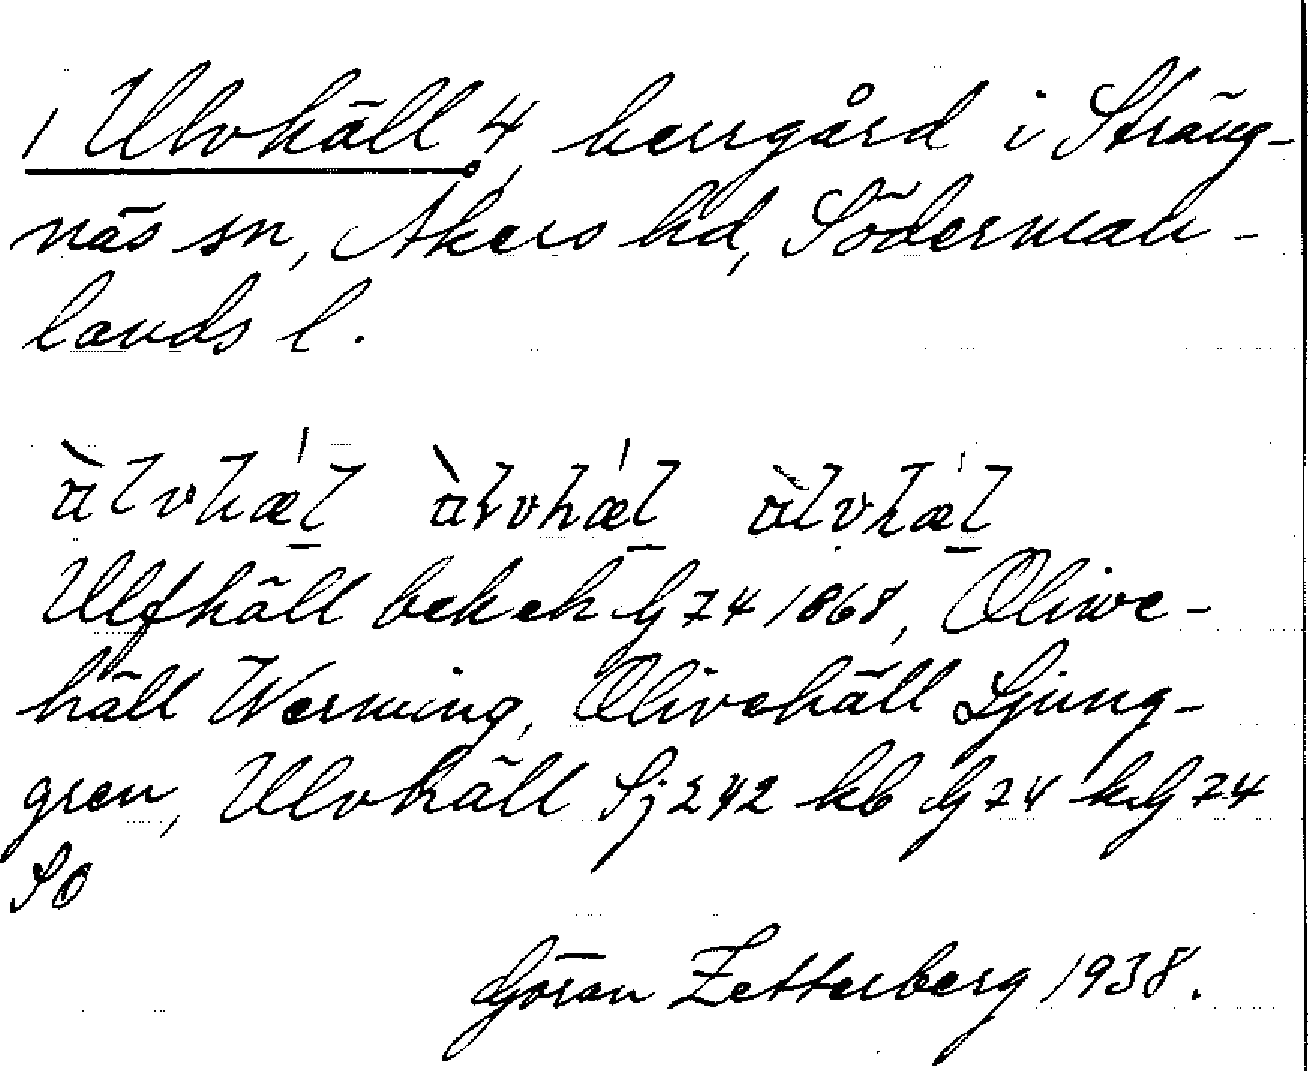 1 Ulvhäll 4, herrgård i Sträng-
näs sn, Åkers hd, Söderman-
lands l.
Ulfhäll bek ek G 74 1868, Olive-
häll Werming, Olivehäll Ljung-
gren, Ulvhäll Sj 242 kb G 74 k G 74
SO
Göran Zetterberg 1938.